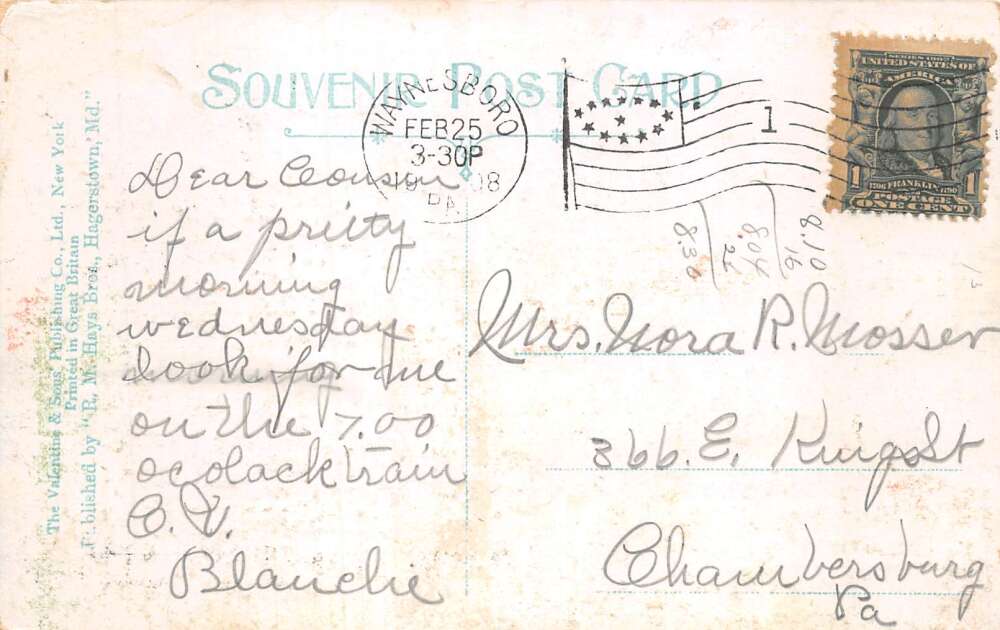 SOUVENIR POST CARD
WAYNESBORO
FEB 25
3-30P
1908
PA.
1
SERIES 1902
UNITED STATES OF
AMERICA
1706 FRANKLIN 1790
POSTAGE
1 ONE CENT 1
The Valentine & Sons' Publishing Co., Ltd., New York
Printed in Great Britain
Published by "R. M. Hays Bros., Hagerstown, Md."
Dear Cousin
if a pritty
morning
wednesday
look for me
on the 7.00
ocolack train
C. V.
Blanche
8.10
16
8.04
26
8.30
Mrs. Nora R. Mosser
366. E. King St
Chambersburg
Pa